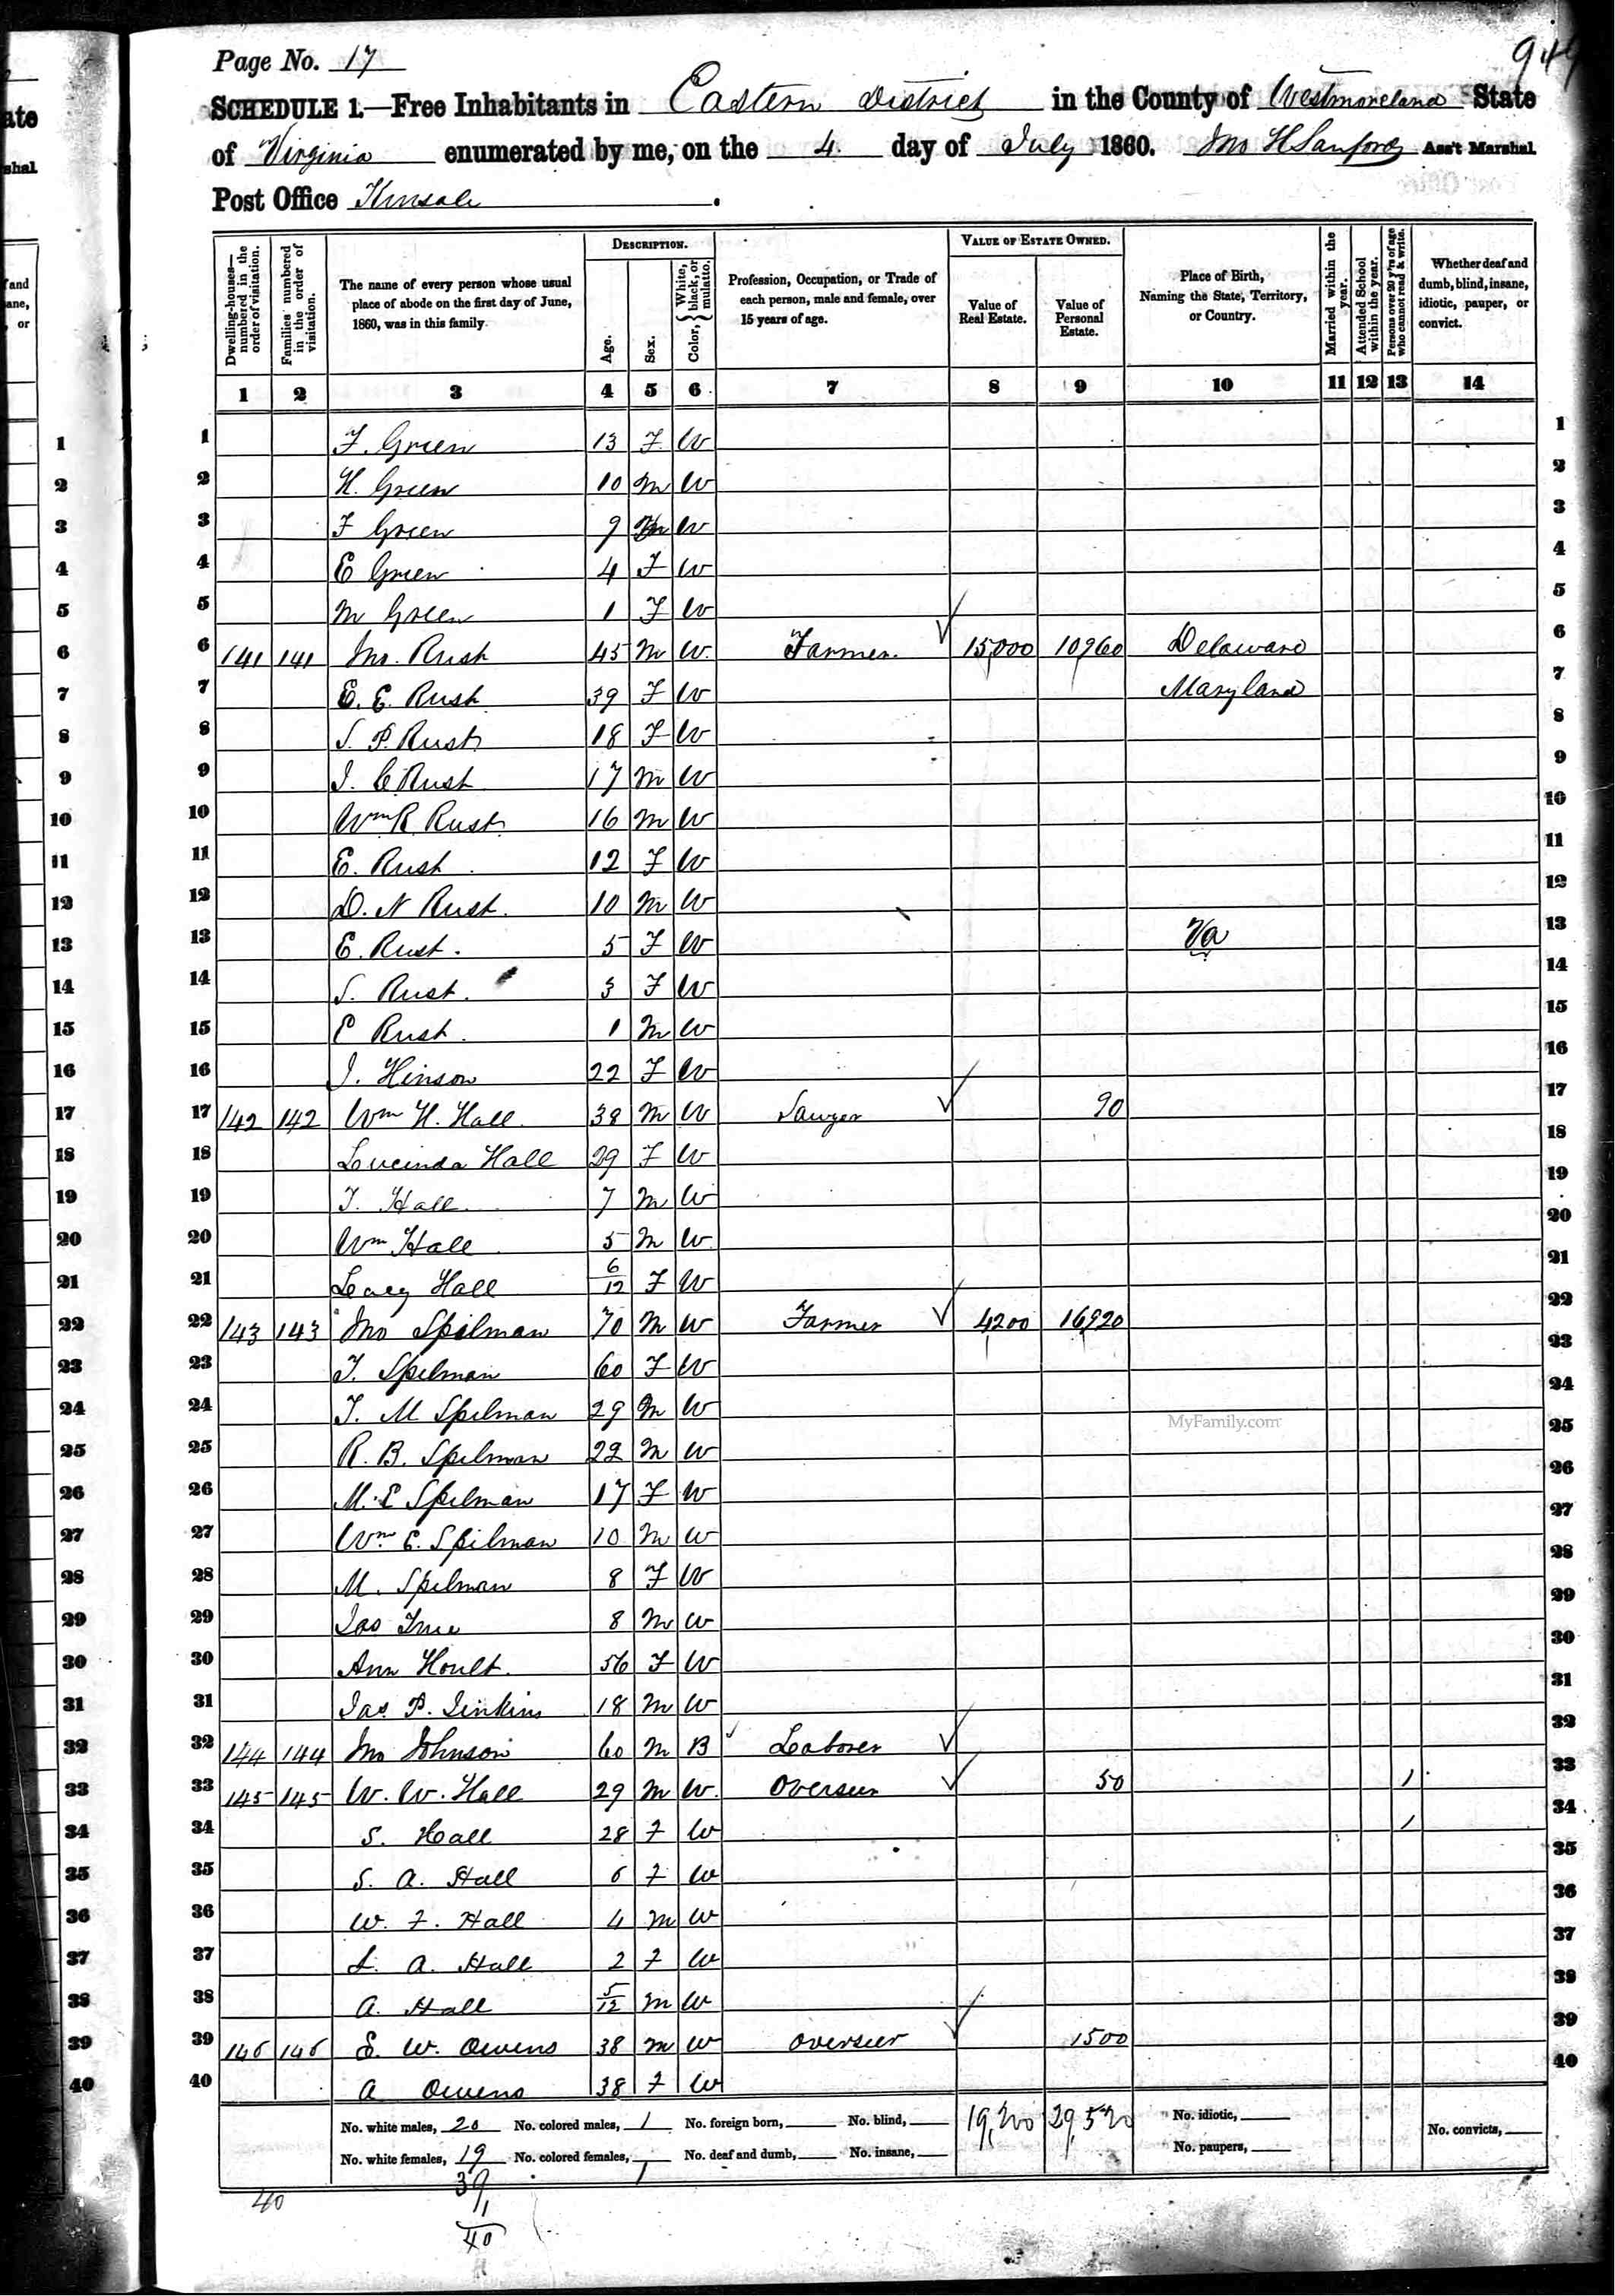 949
Page No. 17
SCHEDULE 1.—Free Inhabitants in Eastern District in the County of Westmoreland State
of Virginia enumerated by me, on the 4 day of July 1860. Jno H Sanford Ass't Marshal
Post Office Kinsale
Dwelling-houses—numbered in the order of visitation. Families numbered in the order of visitation. The name of every person whose usual place of abode on the first day of June, 1860, was in this family. DESCRIPTION. Age. Sex. Color, White, black, or mulatto. Profession, Occupation, or Trade of each person, male and female, over 15 years of age. VALUE OF ESTATE OWNED. Value of Real Estate. Value of Personal Estate. Place of Birth, Naming the State, Territory, or Country. Married within the year. Attended School within the year. Persons over 20 y'rs of age who cannot read & write. Whether deaf and dumb, blind, insane, idiotic, pauper, or convict.
1 2 3 4 5 6 7 8 9 10 11 12 13 14
1 F. Green 13 F. W 1
2 H. Green 10 M W 2
3 F Green 9 M W 3
4 E Green 4 F W 4
5 M Green 1 F W 5
6 141 141 Jno. Rush 45 M W. Farmer. 15,000 10960 Delaware 6
7 E. E. Rush 39 F W Maryland 7
8 S. P. Rush 18 F W 8
9 J. C Rush 17 M W 9
10 Wm R Rush 16 M W 10
11 E. Rush 12 F W 11
12 D. N Rush. 10 M W 12
13 E. Rush. 5 F W Va 13
14 S. Rush. 3 F W 14
15 E Rush. 1 M W 15
16 J. Hinson 22 F W 16
17 142 142 Wm H. Hall 38 M W Sawyer 90 17
18 Lucinda Hall 29 F W 18
19 T. Hall 7 M W 19
20 Wm Hall 5 M W 20
21 Lucy Hall 6/12 F W 21
22 143 143 Jno Spilman 70 M W Farmer 4200 16920 22
23 T. Spilman 60 F W 23
24 T. M Spilman 29 M W 24
25 R. B. Spilman 22 M W 25
26 M. E Spilman 17 F W 26
27 Wm E. Spilman 10 M W 27
28 M. Spilman 8 F W 28
29 Jas 8 M W 29
30 Ann Hoult. 56 F W 30
31 Jas. P. Jinkins 18 M W 31
32 144 144 Jno Johnson 60 M B Laborer 32
33 145 145 W. W. Hall 29 M W. Overseer 50 1 33
34 S. Hall 28 F W 1 34
35 S. A. Hall 6 F W 35
36 W. F. Hall 4 M W 36
37 L. A. Hall 2 F W 37
38 A. Hall 5/12 M W 38
39 146 146 E. W. Owens 38 M W Overseer 1500 39
40 A Owens 38 F W 40
MyFamily.com
No. white males, 20 No. colored males, 1 No. foreign born, No. blind, 19,200 29,520 No. idiotic,
No. white females, 19 No. colored females, No. deaf and dumb, No. insane, No. paupers, No. convicts,
39
1
40 40